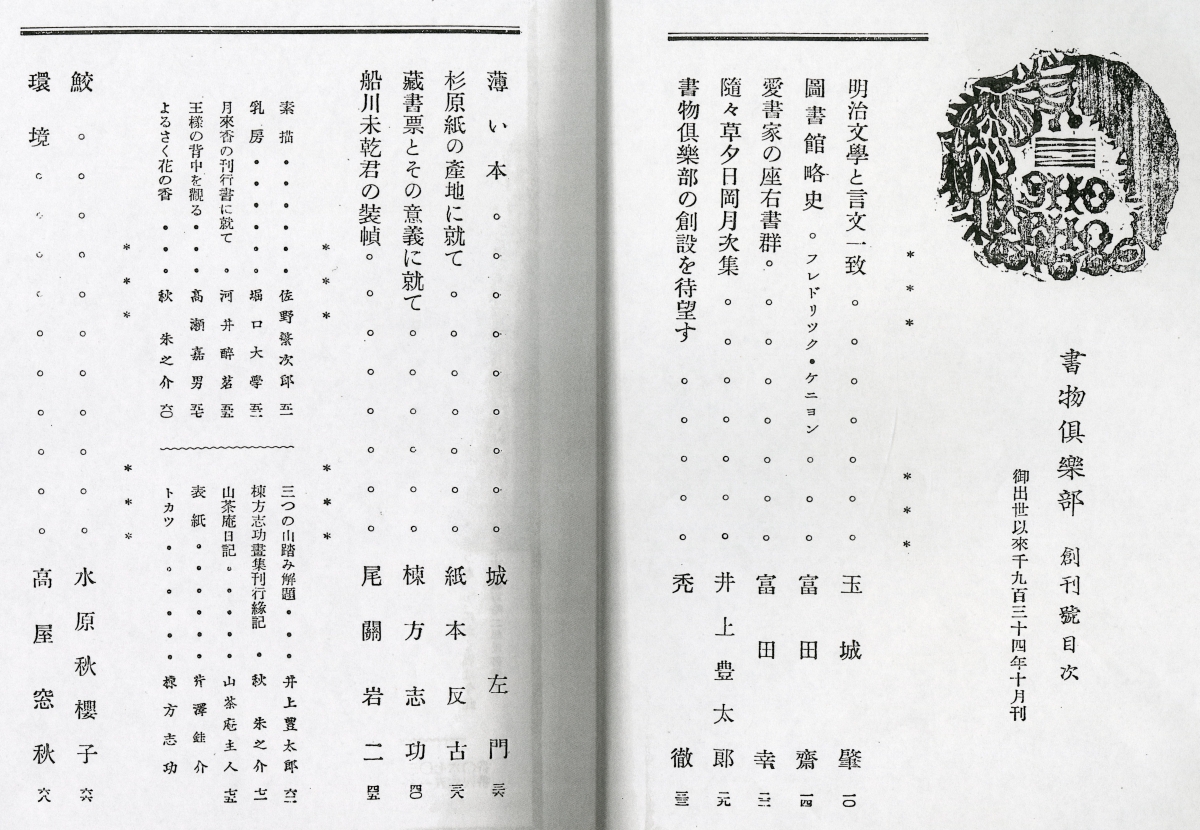 書物倶樂部 創刊號目次
御出世以來千九百三十四年十月刊
* * * * * *
明治文學と言文一致。。。。。。。玉城肇 一〇
圖書館略史。フレドリツク・ケニヨン 富田齋 一四
愛書家の座右書群。。。。。。。。富田幸 二二
隨々草夕日岡月次集。。。。。。。井上豊太郎 二九
書物倶樂部の創設を待望す。。。。。禿徹 三三
薄い本。。。。。。。。。城左門 三六
杉原紙の産地に就て。。。。。。。紙本反古 三八
藏書票とその意義に就て。。。。。。棟方志功 四〇
船川未乾君の装幀。。。。。。。。尾關岩二 四五
* * * * * *
素描・・・・・佐野繁次郎 五一
乳房・・・・・堀口大學 五二
月來香の刊行書に就て・河井醉茗 五五
王樣の背中を觀る・・高瀬嘉男 五七
よるさく花の香・・・・秋朱之介 六〇
三つの山踏み解題・・・井上豊太郎 六二
棟方志功畫集刊行緣記・秋朱之介 七一
山茶庵日記・・・・・山茶庵主人 七五
表紙・・・・・・芹澤銈介
トカツ・・・・・・棟方志功
* * * * * *
鮫。。。。。。。。。。。水原秋櫻子 六六
環境。。。。。。。。。。高屋窓秋 六八